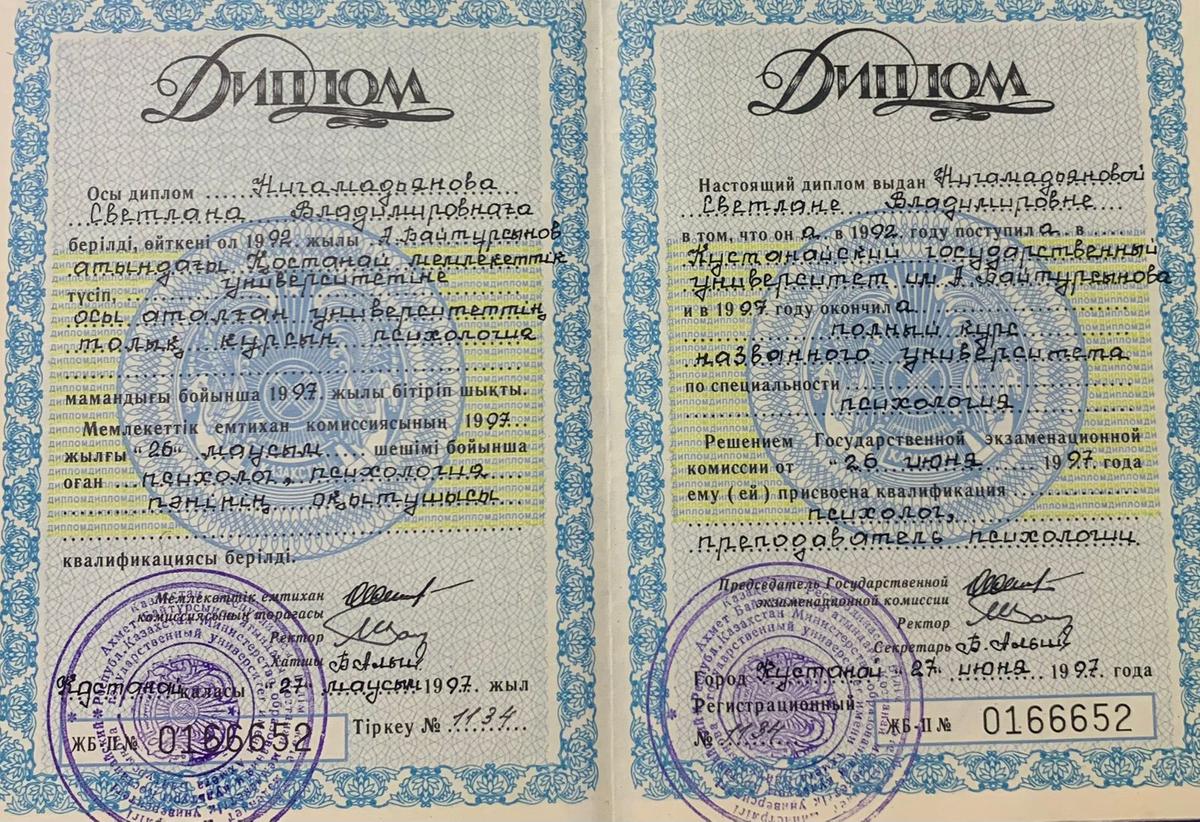 Диплом
Осы диплом Нигамадьянова
Светлана Владимировнаға
берілді, өйткені ол 1992. жылы А.Байтурсынов
атындағы Қостанай мемлекеттік
университетіне
түсіп,
осы аталған университеттің
толық курсын психология
мамандығы бойынша 1997. жылы бітіріп шықты.
Мемлекеттік емтихан комиссиясының 1997.
жылғы "26" маусым шешімі бойынша
оған психолог, психология
пәнінің оқытушысы
квалификациясы берілді.
Мемлекеттік емтихан
комиссиясының төрағасы
Ректор
Хатшы
Қостанай каласы "27" маусым 1997. жыл
ЖБ-II № 0166652
Тіркеу № 1134
Диплом
Настоящий диплом выдан Нигамадьяновой
Светлане Владимировне
в том, что он а в 1992. году поступил а в
Кустанайский государственный
университет им.А.Байтурсынова
и в 1997 году окончил а
полный курс
названного университета
по специальности
психология
Решением Государственной экзаменационной
комиссии от "26 июня 1997. года
ему ( ей ) присвоена квалификация
психолог,
преподаватель психологии
Председатель Государственной
экзаменационной комиссии
Ректор
Секретарь
Город Кустанай "27" июня 1997. года
Регистрационный
№ 1134
ЖБ-II № 0166652